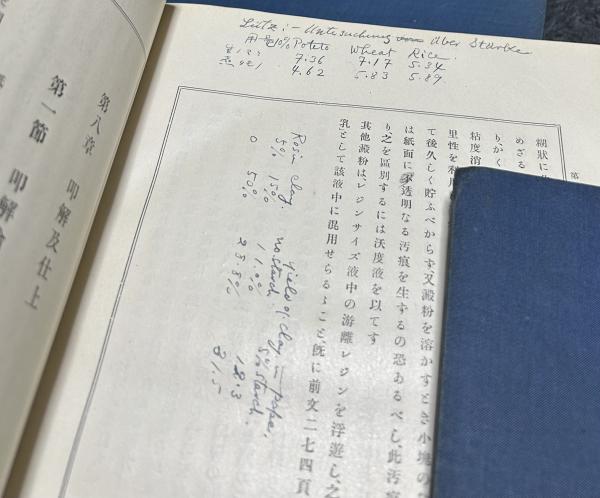 Lütz :- Untersuchung über Stärke
用量10% Potato Wheat Rice
7.36 7.17 5.34
4.62 5.83 5.89
糊狀に
めざる
り、かく
粘度消
里性を利用
て後久しく貯ふべからず、又澱粉を溶かすとき小塊の
は紙面に不透明なる汚痕を生するの恐あるべし、此汚
り之を區別するには沃度液を以てす
其他澱粉は、レジンサイズ液中の游離レジンを浮遊し、之
乳』として該液中に混用せらるゝこと、既に前文二七四頁
Rosin clay. yield of clay = paper.
5% 15% no starch. 5% starch.
11.0% 12.3
0 50% 23.8% 31.5
第八章 叩解及仕上
第一節 叩解